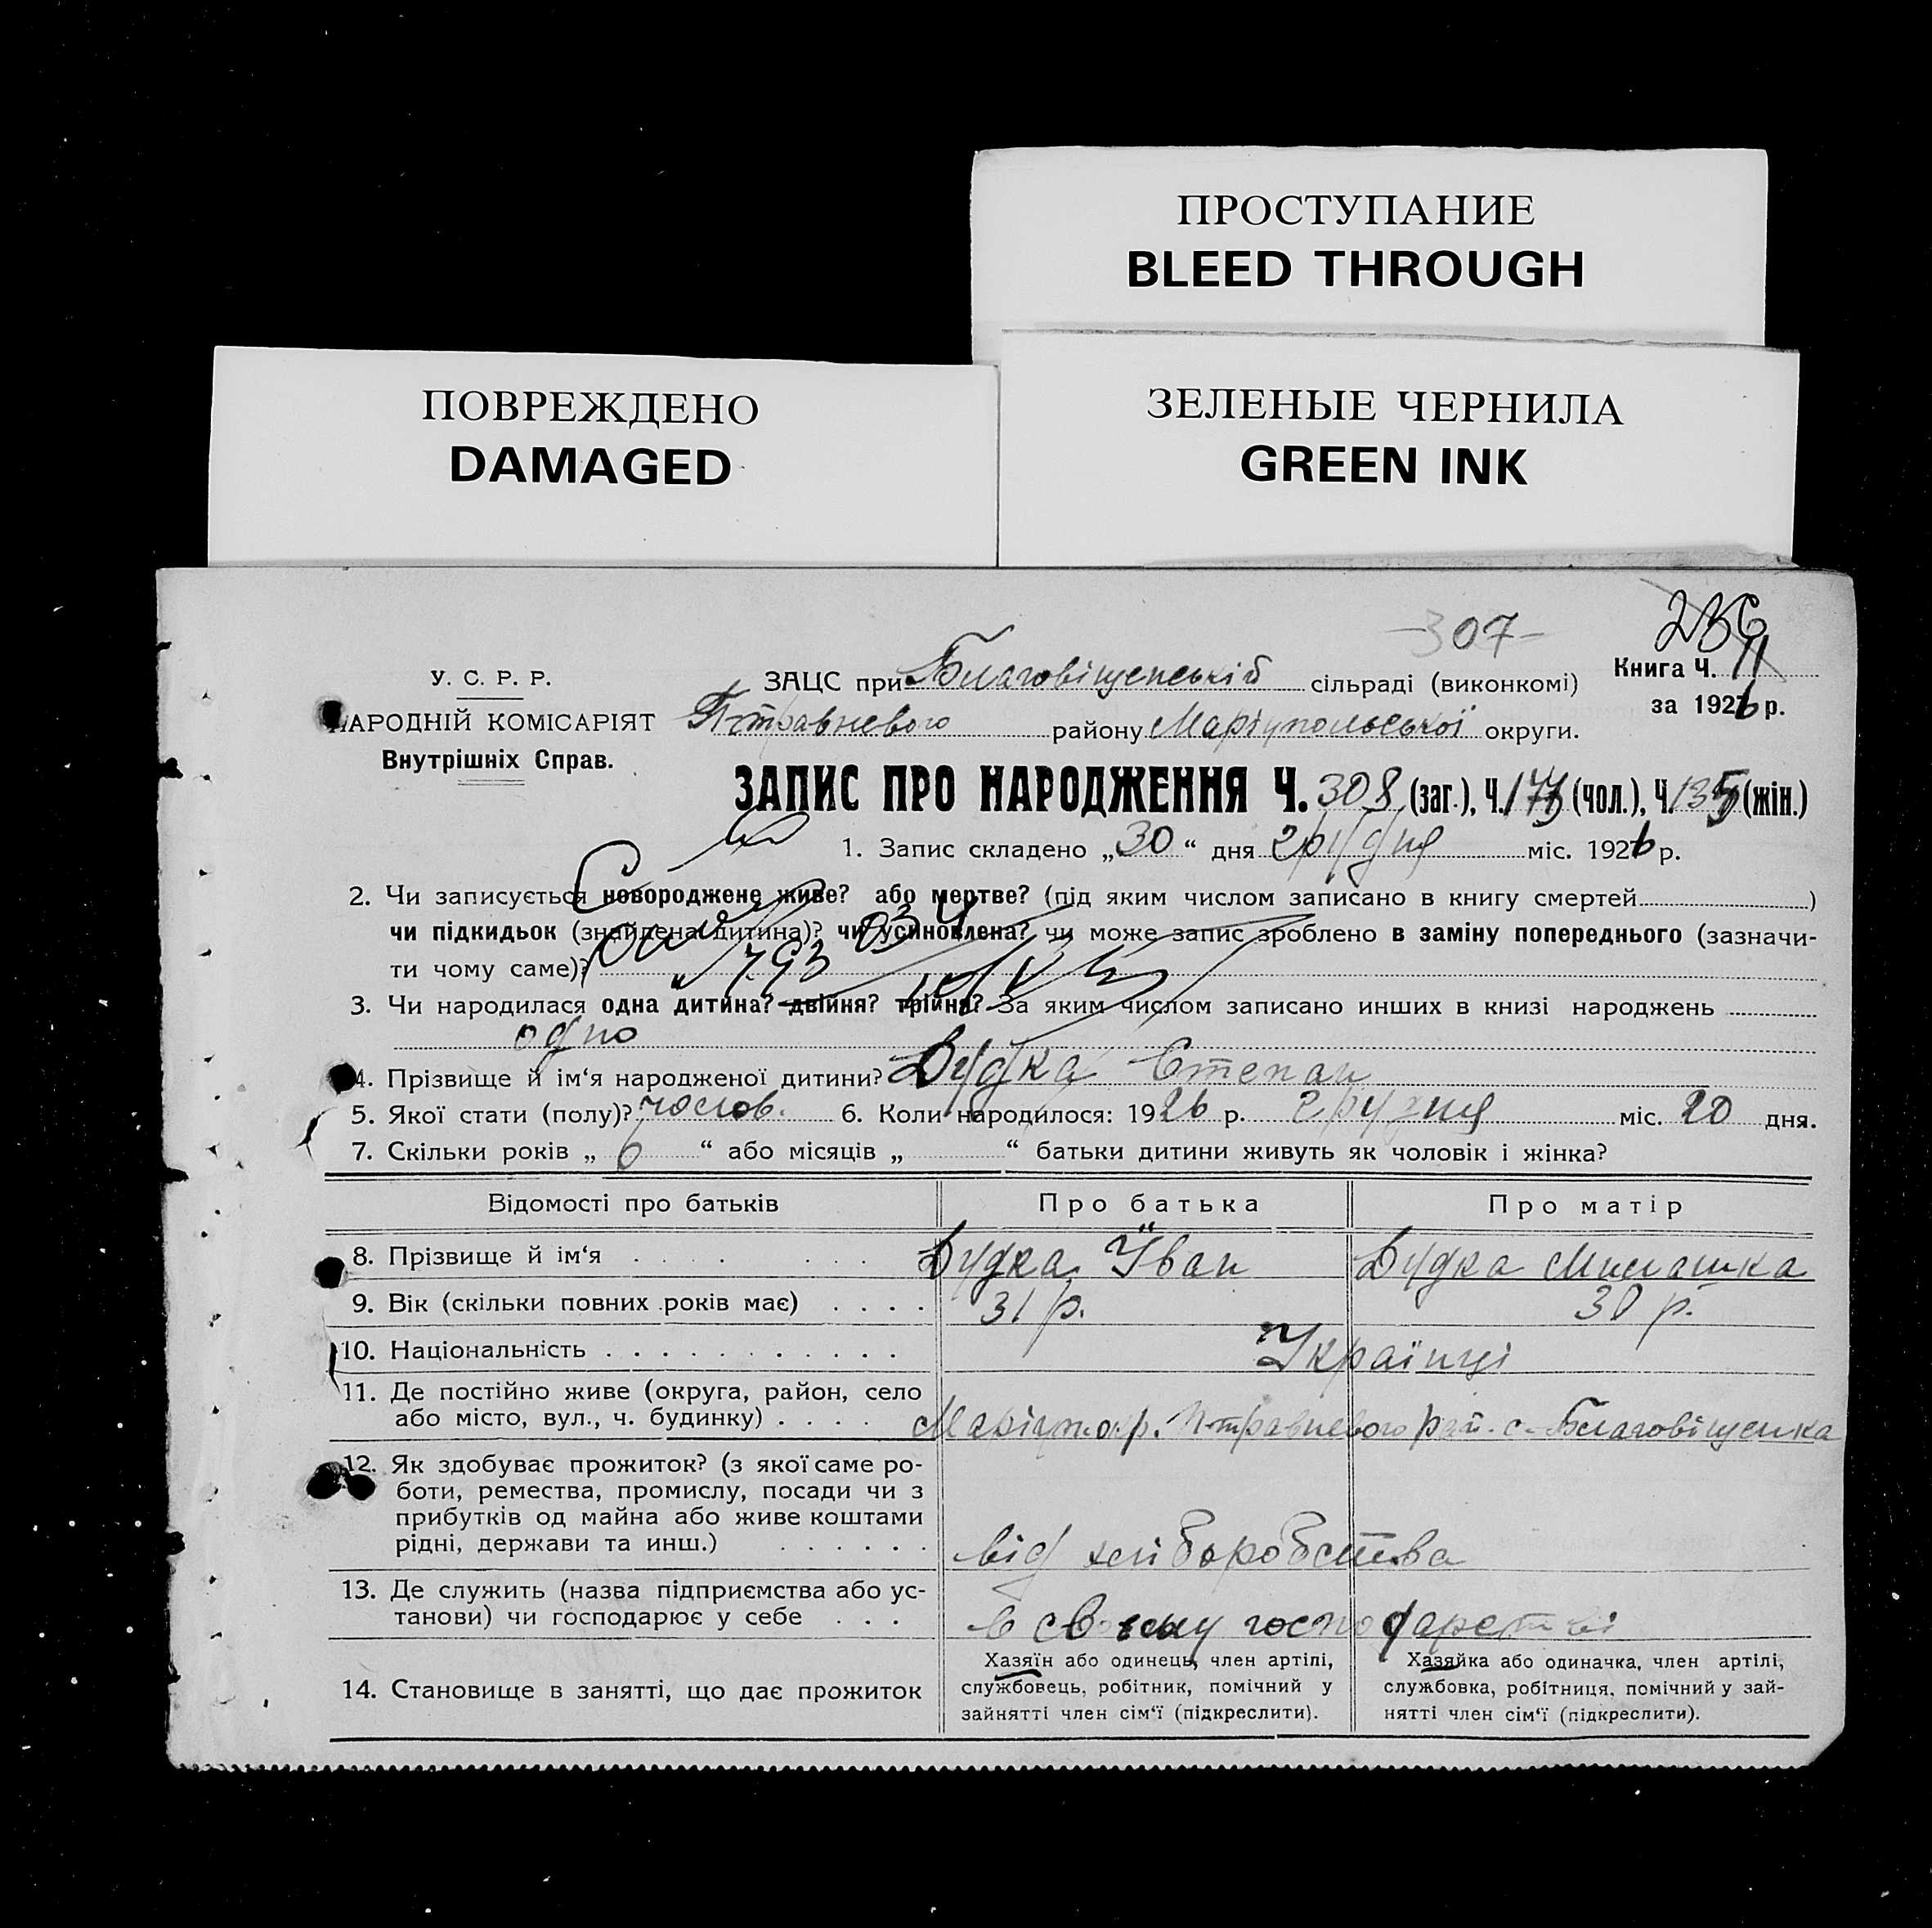 ПРОСТУПАНИЕ
BLEED THROUGH
ПОВРЕЖДЕНО
DAMAGED
ЗЕЛЕНЫЕ ЧЕРНИЛА
GREEN INK
307
У. С. Р. Р.
НАРОДНІЙ КОМІСАРІЯТ
Внутрішніх Справ.
ЗАЦС при Благовіщенській сільраді (виконкомі)
Книга Ч. 11
за 1926 р.
П-травневого району Маріупольської округи.
ЗАПИС ПРО НАРОДЖЕННЯ Ч. 308 (заг.), Ч. 173 (чол.), Ч. 135 (жін.)
1. Запис складено „30“ дня грудня міс. 1926 р.
2. Чи записується новороджене живе? або мертве? (під яким числом записано в книгу смертей )
чи підкидьок (знайдена дитина)? чи усиновлена? чи може запис зроблено в заміну попереднього (зазначи-
ти чому саме)?
3. Чи народилася одна дитина? двійня? трійня? За яким числом записано инших в книзі народжень
одно
4. Прізвище й ім‘я народженої дитини? Дудка Степан
5. Якої стати (полу)? чолов. 6. Коли народилося: 1926 р. грудня міс. 20 дня.
7. Скільки років „ 6 “ або місяців „ “ батьки дитини живуть як чоловік і жінка?
Відомості про батьків Про батька Про матір
8. Прізвище й ім‘я . . . . . . . Дудка Іван Дудка
9. Вік (скільки повних років має) . . . . 31 р. 30 р.
10. Національність . . . . . . . . . . . Українці
11. Де постійно живе (округа, район, село
або місто, вул., ч. будинку) . . . . Маріуп. окр. П-травневого рай. с. Благовіщенка
12. Як здобуває прожиток? (з якої саме ро-
боти, ремества, промислу, посади чи з
прибутків од майна або живе коштами
рідні, держави та инш.) . . . . . . від хліборобства
13. Де служить (назва підприємства або ус-
танови) чи господарює у себе . . . в своєму господарстві
14. Становище в занятті, що дає прожиток
Хазяїн або одинець, член артілі,
службовець, робітник, помічний у
зайнятті член сім‘ї (підкреслити).
Хазяйка або одиначка, член артілі,
службовка, робітниця, помічний у зай-
нятті член сім‘ї (підкреслити).